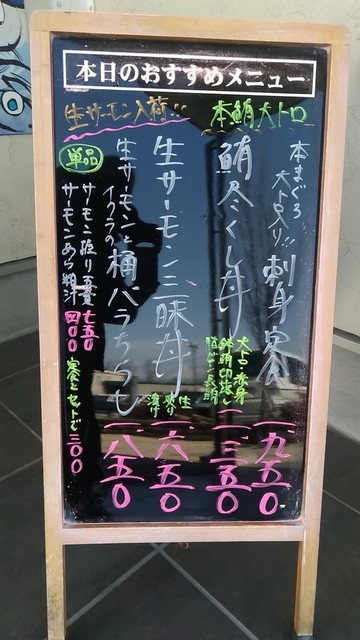 本日のおすすめメニュー
本鮪大トロ
生サーモン入荷!!
本まぐろ
大トロ入り!!
刺身定食
一、九五0
鮪尽くし丼
大トロ・赤身
二、三五0
生サーモン三昧丼
生
炙り
漬け
一、六五0
生サーモンと
イクラの
桶バラちらし
一、八五0
単品
サーモン握り五貫 七五0
サーモンあら粗汁 四00
定食とセットで 三00